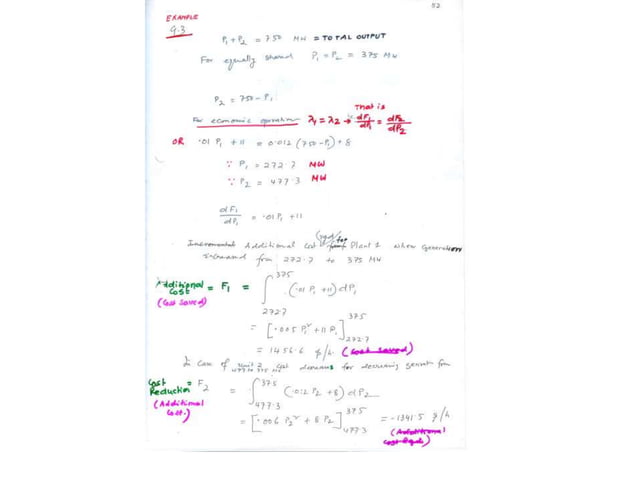 52
EXAMPLE
9.3
P₁ + P₂ = 750 MW = TOTAL OUTPUT
For equally shared P₁ = P₂ = 375 MW
P₂ = 750 - P₁
For economic operation λ₁ = λ₂ → That is dF₁/dP₁ = dF₂/dP₂
OR ·01 P₁ + 11 = 0·012 (750 - P₁) + 8
∵ P₁ = 272·7 MW
∵ P₂ = 477·3 MW
dF₁/dP₁ = ·01 P₁ + 11
Incremental Additional Cost for Plant 1 when generation
from 272·7 to 375 MW
Additional Cost = F₁ = ∫₂₇₂.₇³⁷⁵ (·01 P₁ + 11) dP₁
(Cost saved)
= [·005 P₁² + 11 P₁]₂₇₂.₇³⁷⁵
= 1456·6 /h. (Cost saved)
In Case of unit 2 cost decreases for decreasing from
477 to 375 MW
Cost Reduction = F₂ = ∫₄₇₇.₃³⁷⁵ (·012 P₂ + 8) dP₂
(Additional Cost.)
= [·006 P₂² + 8 P₂]₄₇₇.₃³⁷⁵ = -1341·5 /h
(Additional